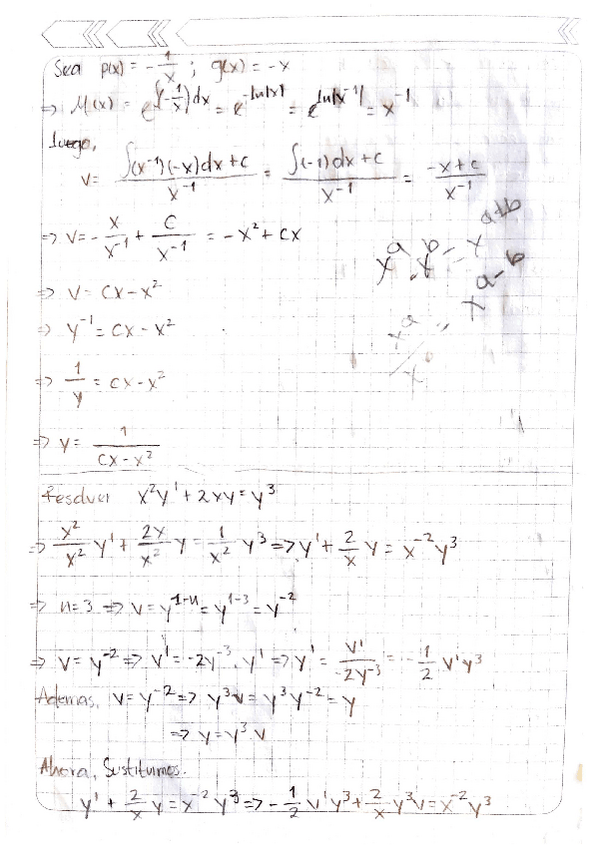 Sea p(x) = -1/x ; g(x) = -x
=> M(x) = e^∫(-1/x)dx = e^-ln|x| = e^ln|x^-1| = x^-1
luego,
v = (∫(x^-1)(-x)dx + c)/x^-1 = (∫(-1)dx + c)/x^-1 = (-x + c)/x^-1
=> v = -x/x^-1 + c/x^-1 = -x² + cx
x^a . x^b = x^(a+b)
=> v = cx - x²
=> y^-1 = cx - x²
x^a/x^b = x^(a-b)
=> 1/y = cx - x²
=> y = 1/(cx - x²)
Resolver x²y' + 2xy = y³
=> x²/x² y' + 2x/x² y = 1/x² y³ => y' + 2/x y = x^-2 y³
=> n = 3 => v = y^(1-n) = y^(1-3) = y^-2
=> v = y^-2 => v' = -2y^-3 . y' => y' = v'/(-2y^-3) = -1/2 v'y³
Ademas, v = y^-2 => y³v = y³y^-2 = y
=> y = y³v
Ahora, Sustituimos.
y' + 2/x y = x^-2 y³ => -1/2 v'y³ + 2/x y³v = x^-2 y³